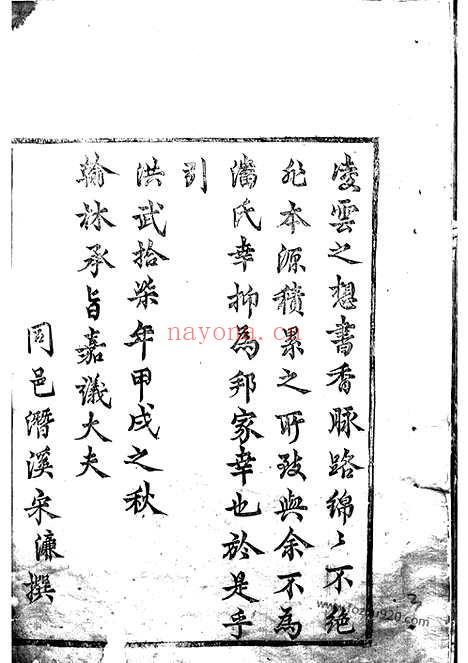 凌雲之想書香脉路綿〻不絶
非本源積累之所致與余不為
潘氏幸抑為邦家幸也於是乎
引
洪武拾柒年甲戌之秋
翰林承旨嘉議大夫
同邑潛溪宋濂撰
nayona.cn